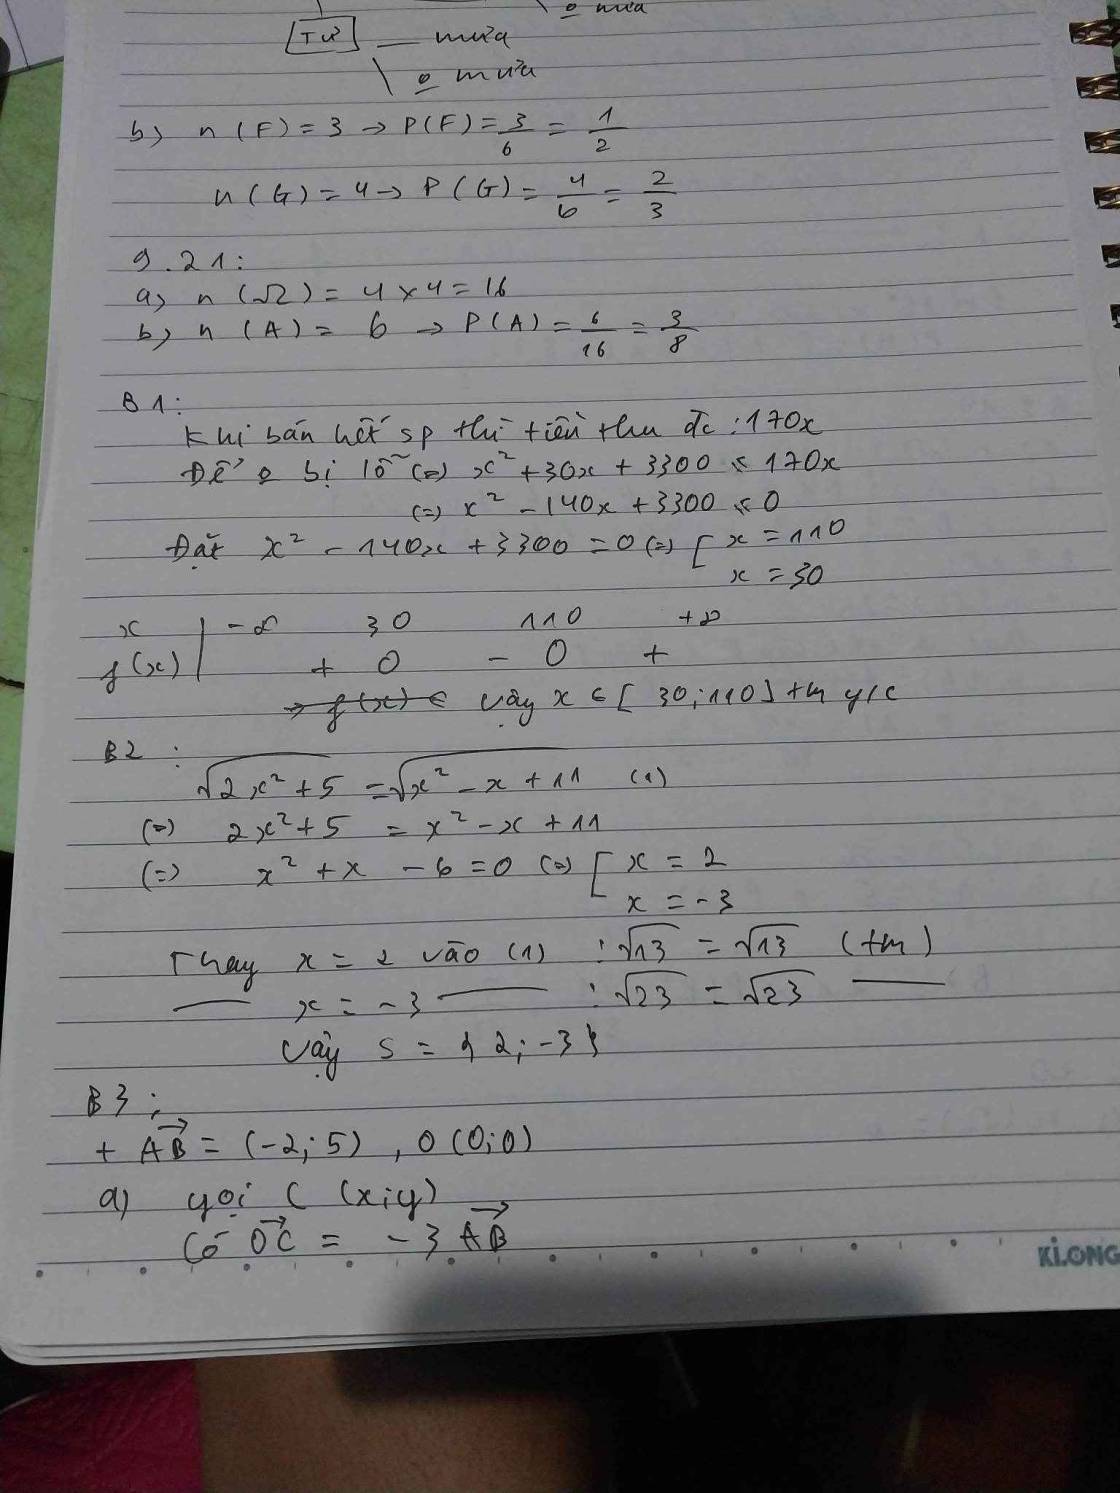 o mưa
Tư — mưa
\ o mưa
b) n(F) = 3 → P(F) = 3/6 = 1/2
n(G) = 4 → P(G) = 4/6 = 2/3
9.21:
a) n(Ω) = 4 × 4 = 16
b) n(A) = 6 → P(A) = 6/16 = 3/8
B1:
Khi bán hết sp thì tiền thu đc: 170x
Để o bị lỗ (=) x² + 30x + 3300 ≤ 170x
(=) x² - 140x + 3300 ≤ 0
Đặt x² - 140x + 3300 = 0 (=) [ x = 110
x = 30
x | -∞ 30 110 +∞
f(x) | + 0 - 0 +
→ f(x) ∈ Vậy x ∈ [30; 110] tm y/c
B2:
√2x² + 5 = √x² - x + 11 (1)
(=) 2x² + 5 = x² - x + 11
(=) x² + x - 6 = 0 (=) [ x = 2
x = -3
Thay x = 2 vào (1) : √13 = √13 (tm)
— x = -3 — : √23 = √23 —
Vậy S = {2; -3}
B3:
+ AB→ = (-2; 5), O(0;0)
a) gọi C (x;y)
Có OC→ = -3 AB→
KLONG